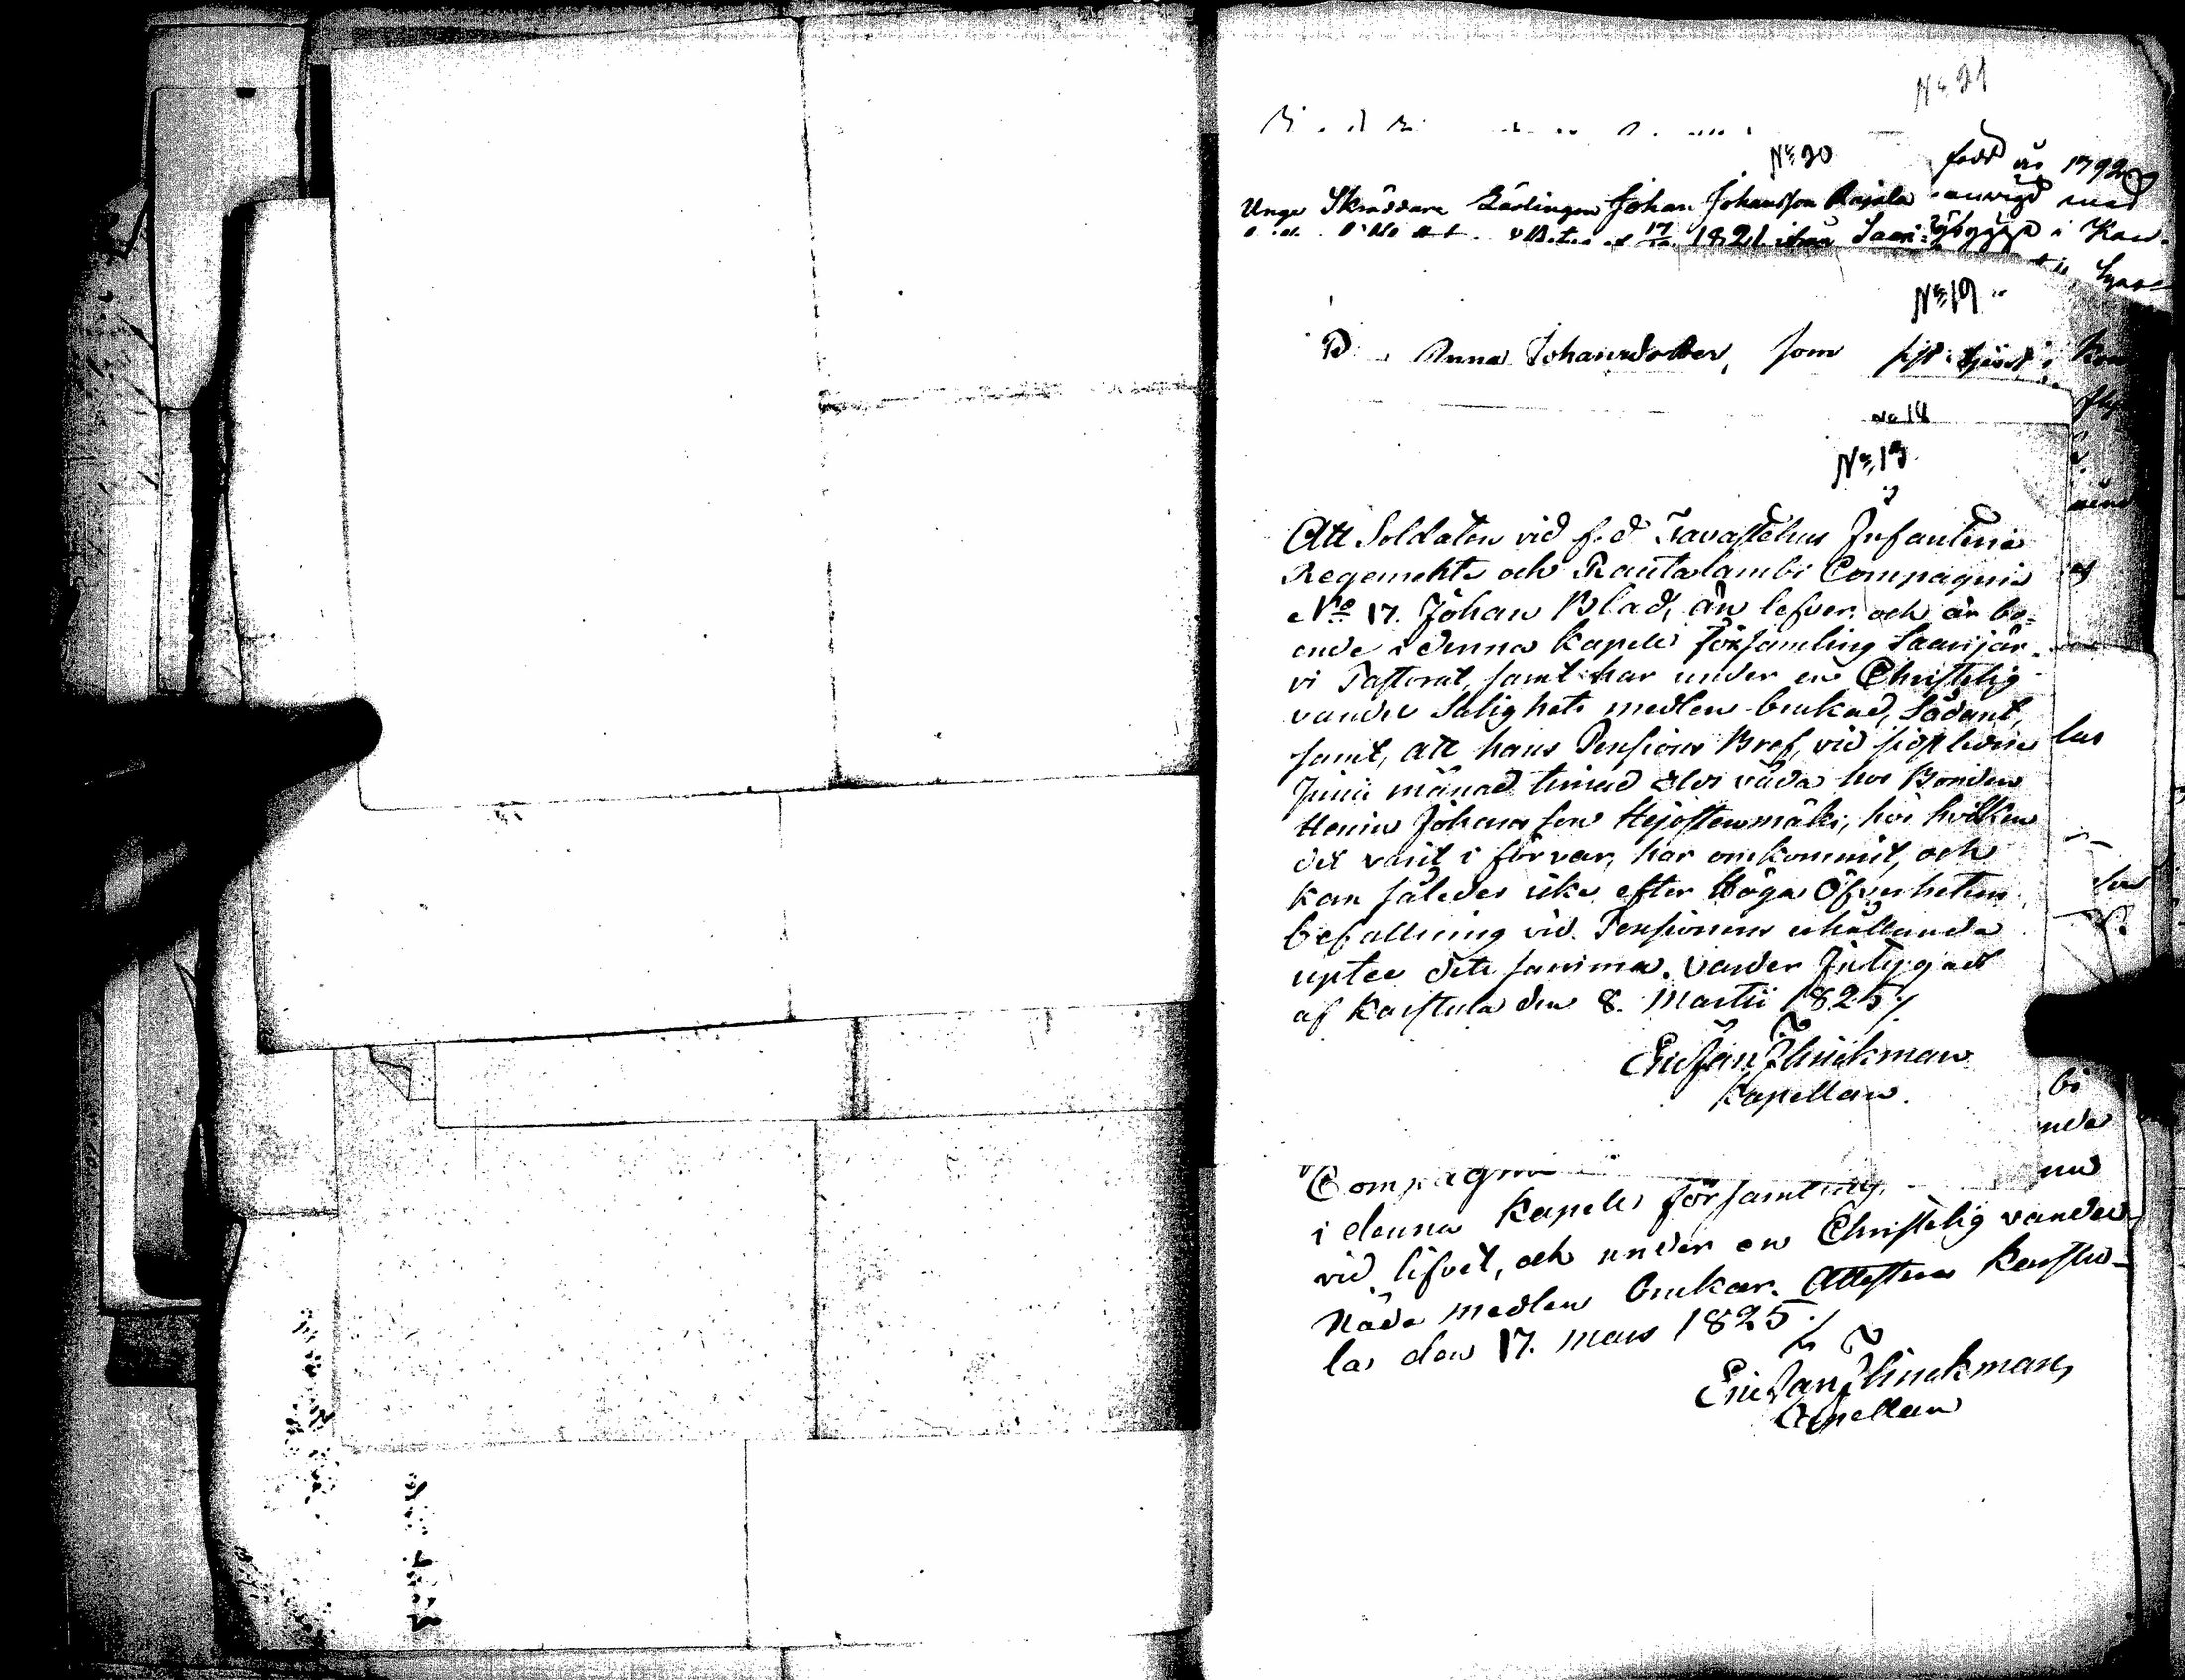 No 21
No 20
född år 1792
Unge Skräddare Lärlingen Johan Johansson Rajala med
1821 i Kau-
No 19
Anna Johansdotter, som sist tjent i
No 18
No 17
Att Soldaten vid f. d Tavastehus Infanterie
Regemente och Rautalambi Compagnie
No 17. Johan Blad, än lefver och är bo-
ende i denna Kapells församling Saarijär-
vi Pastorat, samt har under en Christelig
vandel Salighets medlen brukad, Sådant,
samt, att hans Pensions Bref, vid sidstledne
Junii månad timad Elds våda hos Bonden
Henric Johansson, hos hvilken
det varit i förvar, har omkommit, och
kan således icke efter Höga Öfverhetens
befallning vid Pensionens erhållande
uptee dete samma. varder Intygad
af Karstula den 8. Martii 1825./
Eric Jan Flinckman
Kapellan.
Compagnie
i denna Kapells församling,
vid lifvet, och under en Christelig vandel
Nåde medlen brukar. Attesteras Karstu-
la den 17. Mars 1825./
Eric Jan Flinckman,
Capellan